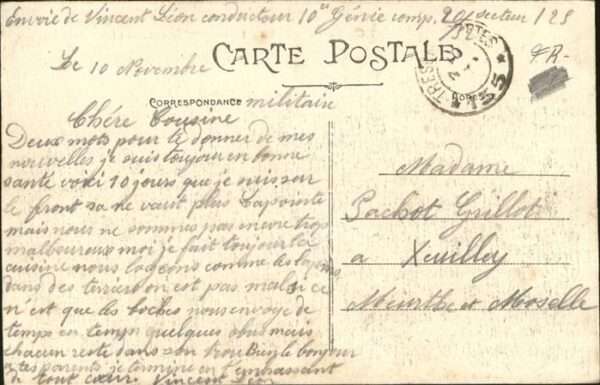 Envoie de Vincent Léon conducteur 10e Génie comp. 20/ secteur 125
CARTE POSTALE
TRESOR POSTES
155
FR-
Le 10 Novembre
CORRESPONDANCE militaire
Chére Cousine
Deux mots pour te donner de mes
nouvelles je suis toujour en bonne
santé voxi 10 jours que je suis sur
le front sa ne vaut plus
mais nous ne sommes pas encore trop
malheureux moi je fait toujour la
cuisine nous logeons comme les lapins
dans des terrier on est pas mal si ce
n'est que les boches nous envoye de
temps en temps quelques obus mais
chacun reste dans son trou Bien le bonjour
a tes parents je termine en t'embrassant
de tout cœur Vincent Léon
Madame
Pachot Grillot
a Xeuilley
Meurthe et Moselle